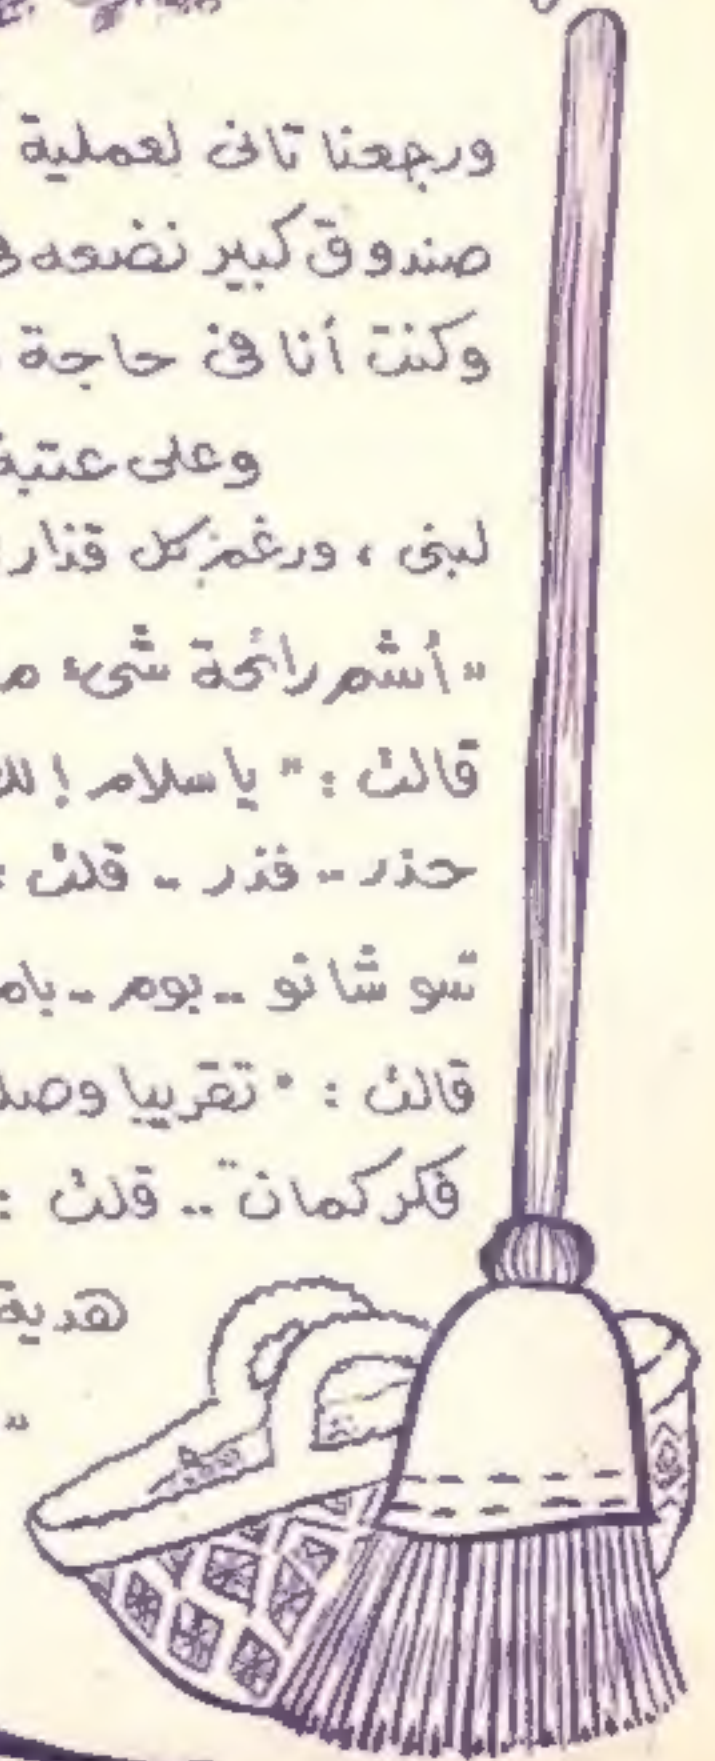 ورجعنا تانى لعملية
صندوق كبير نضعه ف
وكنت أنا فى حاجة
وعلى عتبة
لبنى ، ورغم كل قذار
"أشم رائحة شىء م
قالت : " ياسلام ! لك
حذر -- فذر -- قلت :
سو شا نو -- بوم -- بام
قالت : " تقريبا وصل
فكر كمان" .. قلت :
هدية
"